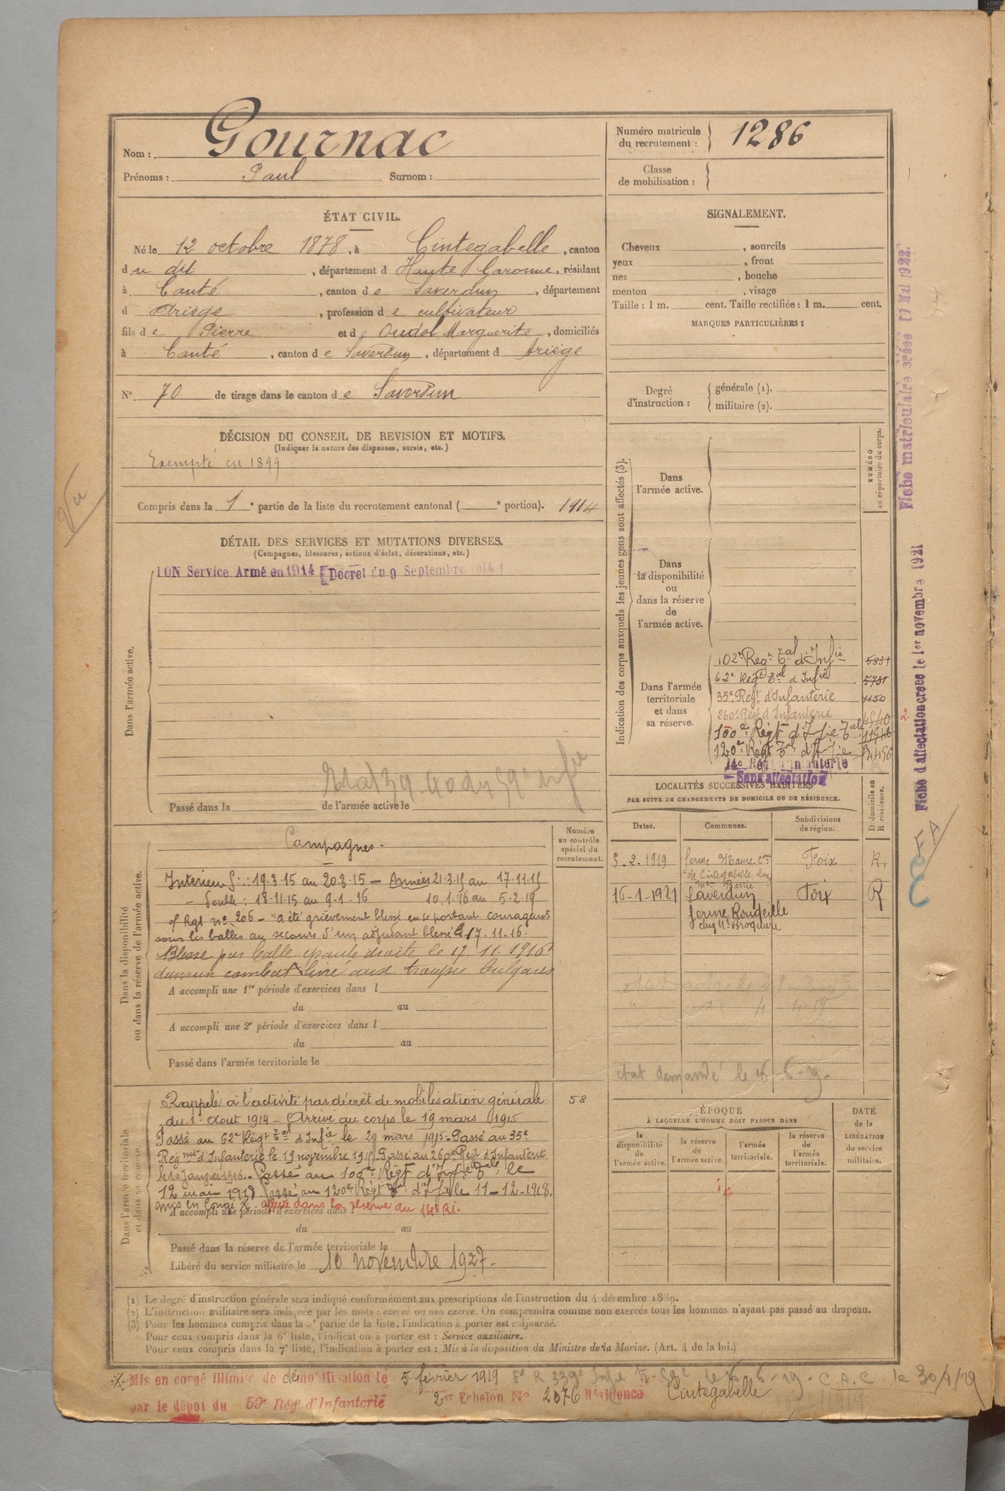 Nom : Gournac
Prénoms : Paul Surnom :
Numéro matricule du recrutement : 1286
Classe de mobilisation :
ÉTAT CIVIL.
Né le 12 octobre 1878, à Cintegabelle, canton
du dit, département d Haute Garonne, résidant
à Canté, canton de Saverdun, département
d Ariège, profession de cultivateur
fils de Pierre et de Oudol Marguerite, domiciliés
à Canté, canton de Saverdun, département d Ariège
N° 70 de tirage dans le canton de Saverdun
DÉCISION DU CONSEIL DE REVISION ET MOTIFS.
(Indiquer la nature des dispenses, sursis, etc.)
Exempté en 1899
Vu
Compris dans la 1e partie de la liste du recrutement cantonal ( e portion). 1914
DÉTAIL DES SERVICES ET MUTATIONS DIVERSES.
(Campagnes, blessures, actions d'éclat, décorations, etc.)
Service Armé en 1914 [Décret du 9 Septembre 1914]
Dans l'armée active.
Passé dans la de l'armée active le
SIGNALEMENT.
Cheveux , sourcils
yeux , front
nez , bouche
menton , visage
Taille : 1 m. cent. Taille rectifiée : 1 m. cent.
MARQUES PARTICULIÈRES :
Degré d'instruction : générale (1).
militaire (2).
Indication des corps auxquels les jeunes gens sont affectés (3).
NUMÉRO au répertoire du corps.
Dans l'armée active.
Dans la disponibilité ou dans la réserve de l'armée active.
Dans l'armée territoriale et dans sa réserve.
102e Régt Tal d'Infie
62e Régt Tal d'Infie
35e Régt d'Infanterie 1150
260e Régt d'Infanterie
100e Régt d'Infie Tale
120e Régt Tal d'Infie
14e Régt Infanterie
Sans affectation
Fiche matriculaire créée
Fiche d'affectation créée le 1er novembre 1921
LOCALITÉS SUCCESSIVES HABITÉES
PAR SUITE DE CHANGEMENTS DE DOMICILE OU DE RÉSIDENCE.
Dates. Communes. Subdivisions de région. D domicile ou R résidence.
5-2-1919 Foix R.
16-1-1921 Saverdun Foix R
ferme Rondeille
état demandé le 16-6-19.
Dans la disponibilité ou dans la réserve de l'armée active.
Numéro au contrôle spécial du recrutement.
Campagnes.
Intérieur : 19.3.15 au 20.3.15 — Armées 21.3.15 au 17.11.15
18.11.15 au 9.1.16 10.1.16 au 5.2.19
of Rgt n° 206 — "a été grièvement blessé en se portant courageusᵗ
sous les balles au secours d'un adjudant blessé le 17.11.16.
Blessé par balle épaule droite le 17.11.1916
dans un combat livré aux troupes bulgares
A accompli une 1re période d'exercices dans l
du au
A accompli une 2e période d'exercices dans l
du au
Passé dans l'armée territoriale le
Dans l'armée territoriale et dans sa réserve
58
Rappelé à l'activité par décret de mobilisation générale
du 1er Aout 1914 — Arrivé au corps le 19 mars 1915
Passé au 62e Régt Tal d'Infie le 29 mars 1915. Passé au 35e
Régmt d'Infanterie le 19 novembre 1915 Passé au 260e Régt d'Infanterie
le 10 Janvier 1916. Passé au 100e Régt d'Infie Tale le
12 mai 1918 Passé au 120e Régt Tal d'Ifie le 11-12-1918.
dans la réserve du 14e RI.
A accompli une période d'exercices dans
du au
Passé dans la réserve de l'armée territoriale le
Libéré du service militaire le 10 novembre 1927.
ÉPOQUE
À LAQUELLE L'HOMME DOIT PASSER DANS
la disponibilité de l'armée active. la réserve de l'armée active. l'armée territoriale. la réserve de l'armée territoriale.
DATE de la LIBÉRATION du service militaire.
(1) Le degré d'instruction générale sera indiqué conformément aux prescriptions de l'instruction du 4 décembre 1889.
(2) L'instruction militaire sera indiquée par les mots : exercé ou non exercé. On comprendra comme non exercés tous les hommes n'ayant pas passé au drapeau.
(3) Pour les hommes compris dans la partie de la liste, l'indication à porter est : Ajourné.
Pour ceux compris dans la 6e liste, l'indication à porter est : Service auxiliaire.
Pour ceux compris dans la 7e liste, l'indication à porter est : Mis à la disposition du Ministre de la Marine. (Art. 4 de la loi.)
Mis en congé illimité de démobilisation le 5 février 1919
par le dépôt du 59e Rég. d'Infanterie 2e Echelon N° 2076 Résidence Cintegabelle
C.A.C. le 30/4/19